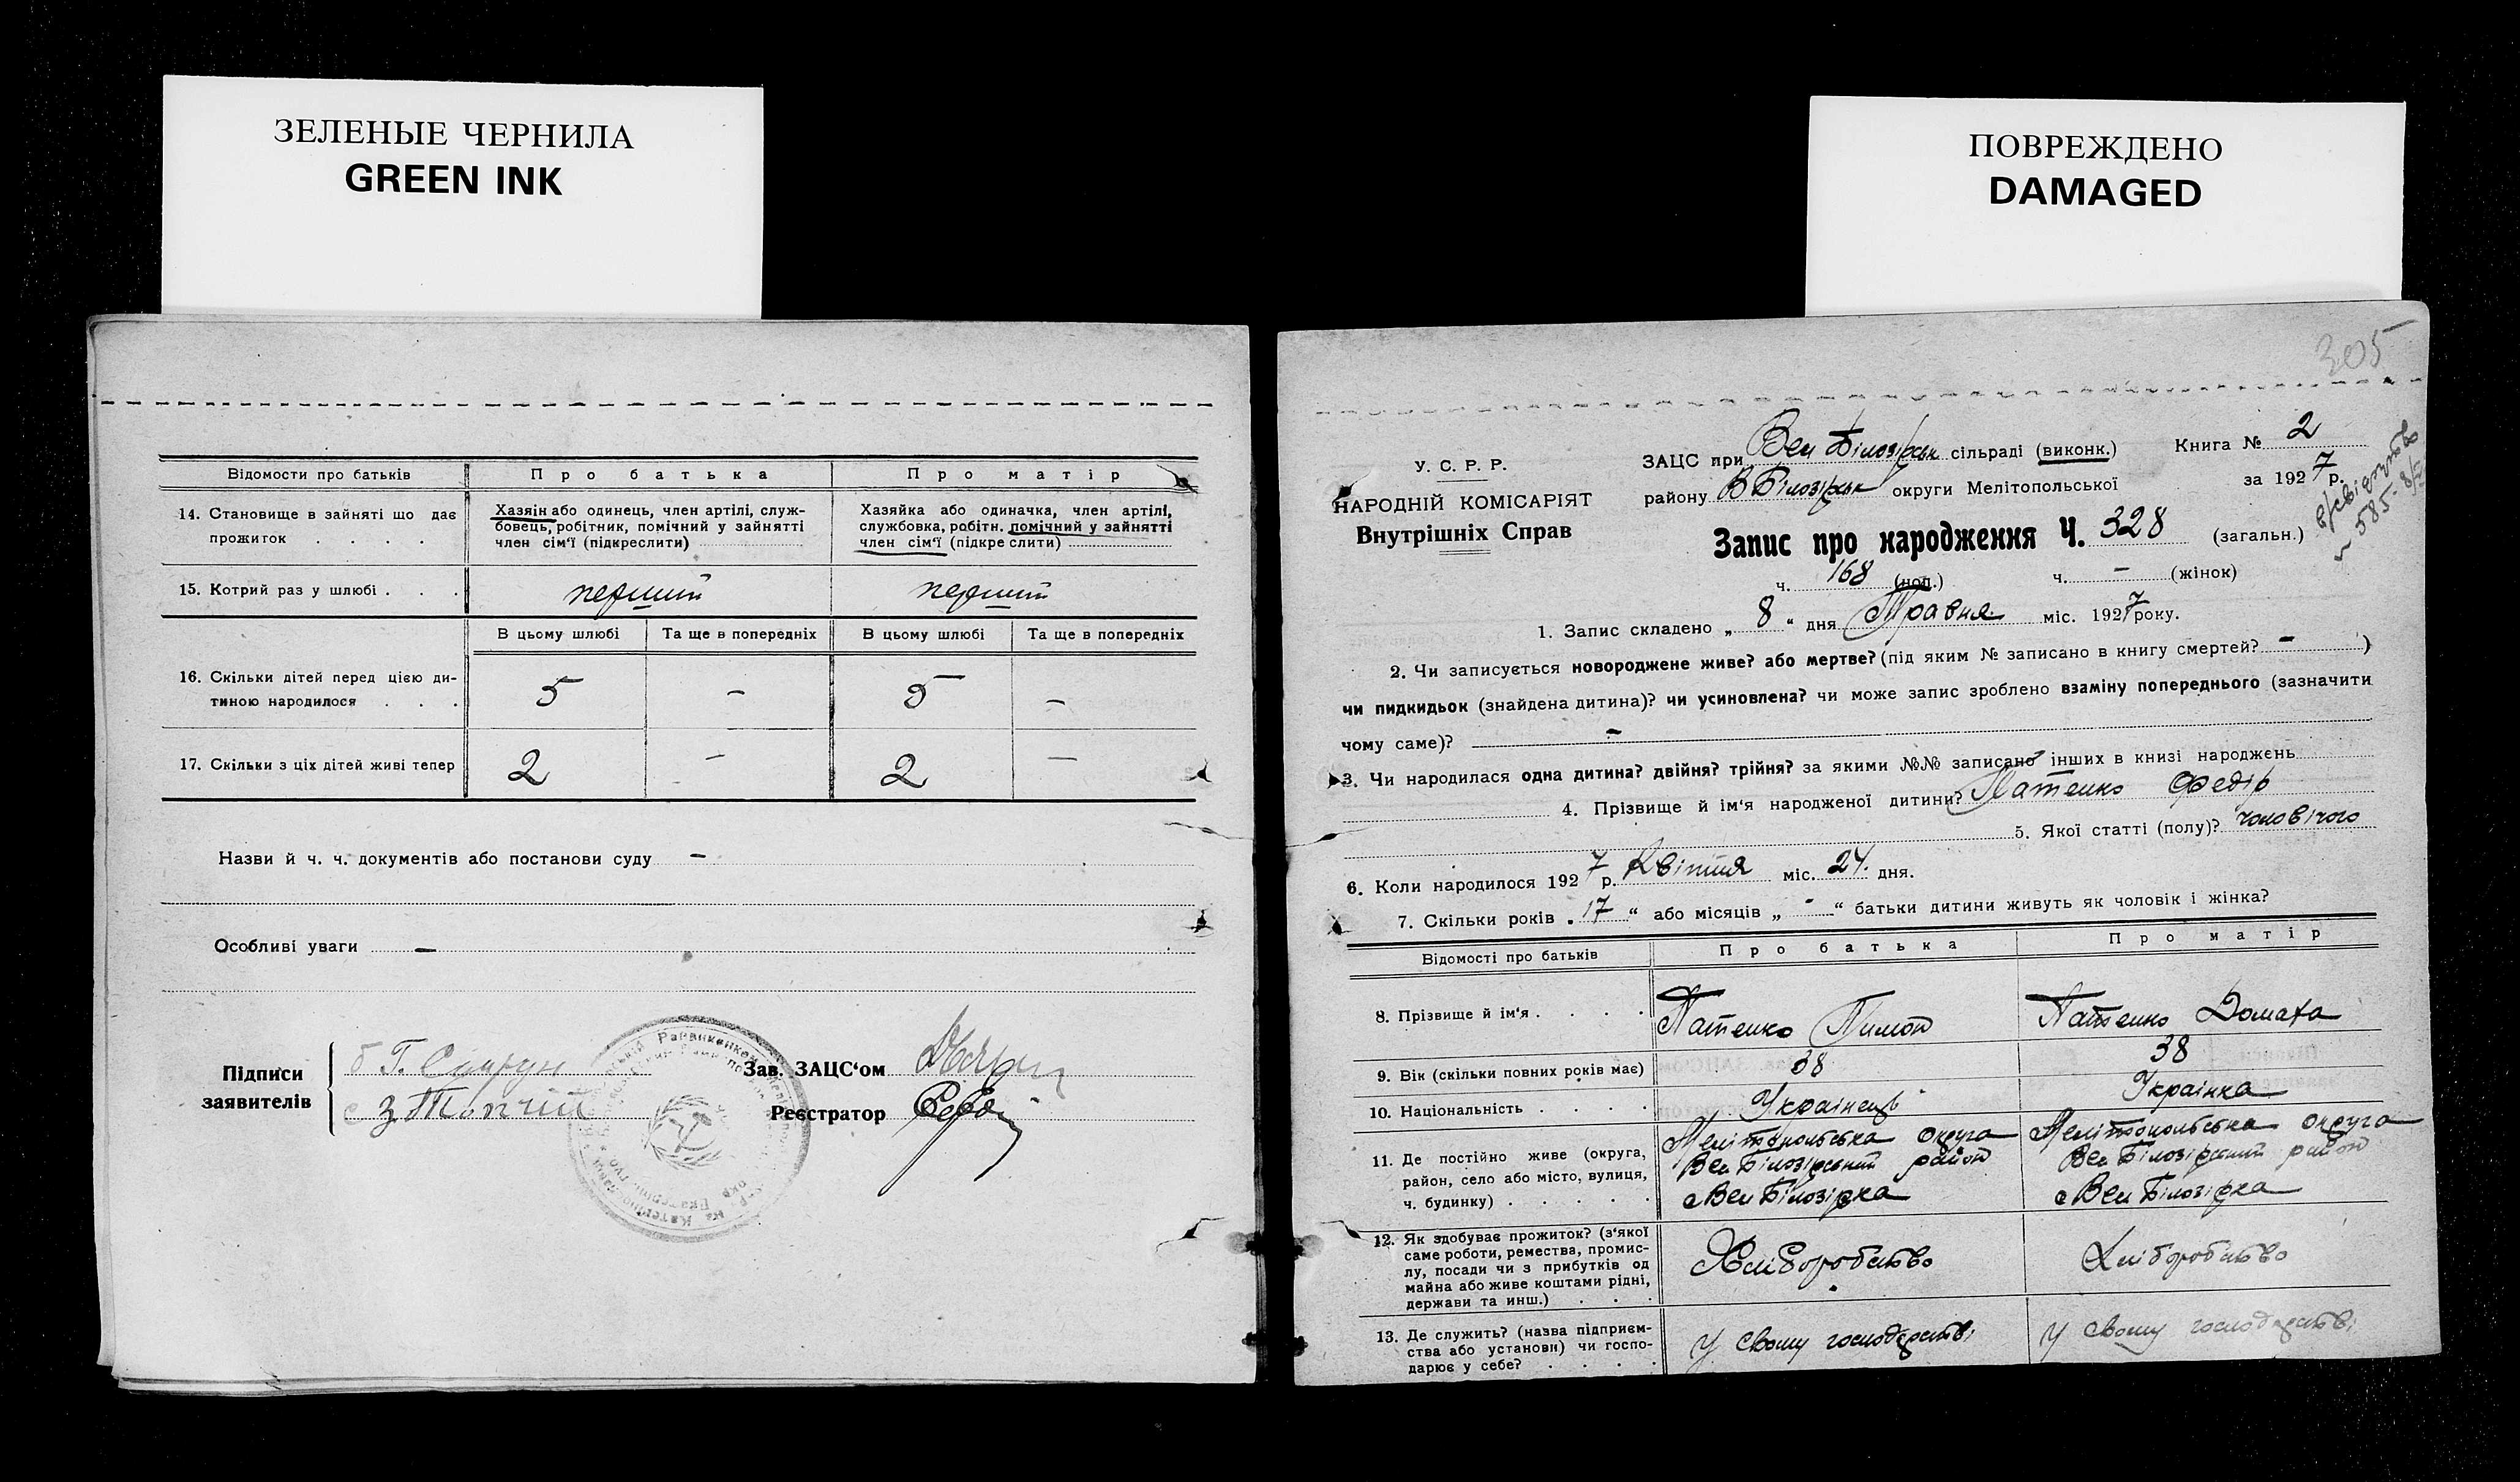 ЗЕЛЕНЫЕ ЧЕРНИЛА
GREEN INK
ПОВРЕЖДЕНО
DAMAGED
Відомости про батьків
Про батька
Про матір
14. Становище в зайняті що дає
прожиток . . . .
Хазяін або одинець, член артілі, служ-
бовець, робітник, помічний у зайнятті
член сім'ї (підкреслити)
Хазяйка або одиначка, член артілі,
службовка, робітн. помічний у зайнятті
член сім'ї (підкреслити)
15. Котрий раз у шлюбі . . .
перший
перший
В цьому шлюбі
Та ще в попередніх
В цьому шлюбі
Та ще в попередніх
16. Скільки дітей перед цією ди-
тиною народилося . . .
5
–
5
–
17. Скільки з ціх дітей живі тепер
2
–
2
–
Назви й ч. ч. документів або постанови суду –
Особливі уваги –
Підписи
заявителів
Зав. ЗАЦС'ом
Реєстратор
305
У. С. Р. Р.
НАРОДНІЙ КОМІСАРІЯТ
Внутрішніх Справ
ЗАЦС при Вел Білозірськ сільраді (виконк.)
району В Білозірськ округи Мелітопольської
Книга № 2
за 1927 р.
585
Запис про народження Ч. 328 (загальн.)
ч. 168 (чол.) ч. – (жінок)
1. Запис складено „ 8 “ дня Травня міс. 1927 року.
2. Чи записується новороджене живе? або мертве? (під яким № записано в книгу смертей? – )
чи пидкидьок (знайдена дитина)? чи усиновлена? чи може запис зроблено взаміну попереднього (зазначити
чому саме)? –
3. Чи народилася одна дитина? двійня? трійня? за якими №№ записано інших в книзі народжень
4. Прізвище й ім'я народженої дитини? Патенко Федір
5. Якої статті (полу)? чоловічого
6. Коли народилося 1927 р. Квітня міс. 24. дня.
7. Скільки років „ 17 “ або місяців „ - “ батьки дитини живуть як чоловік і жінка?
Відомості про батьків
Про батька
Про матір
8. Прізвище й ім'я . . . .
Патенко Пимон
Патенко Домаха
9. Вік (скільки повних років має)
38
38
10. Національність . . . .
Українець
Українка
11. Де постійно живе (округа,
район, село або місто, вулиця,
ч. будинку) . . . . .
Мелітопольська округа
Вел Білозірський район
с Вел Білозірка
Мелітопольська округа
Вел Білозірський район
с Вел Білозірка
12. Як здобуває прожиток? (з'якої
саме роботи, ремества, промис-
лу, посади чи з прибутків од
майна або живе коштами рідні,
держави та инш.) . . .
Хліборобство
Хліборобство
13. Де служить? (назва підприєм-
ства або установи) чи госпо-
дарює у себе? . . . .
у свому господарстві
у свому господарстві